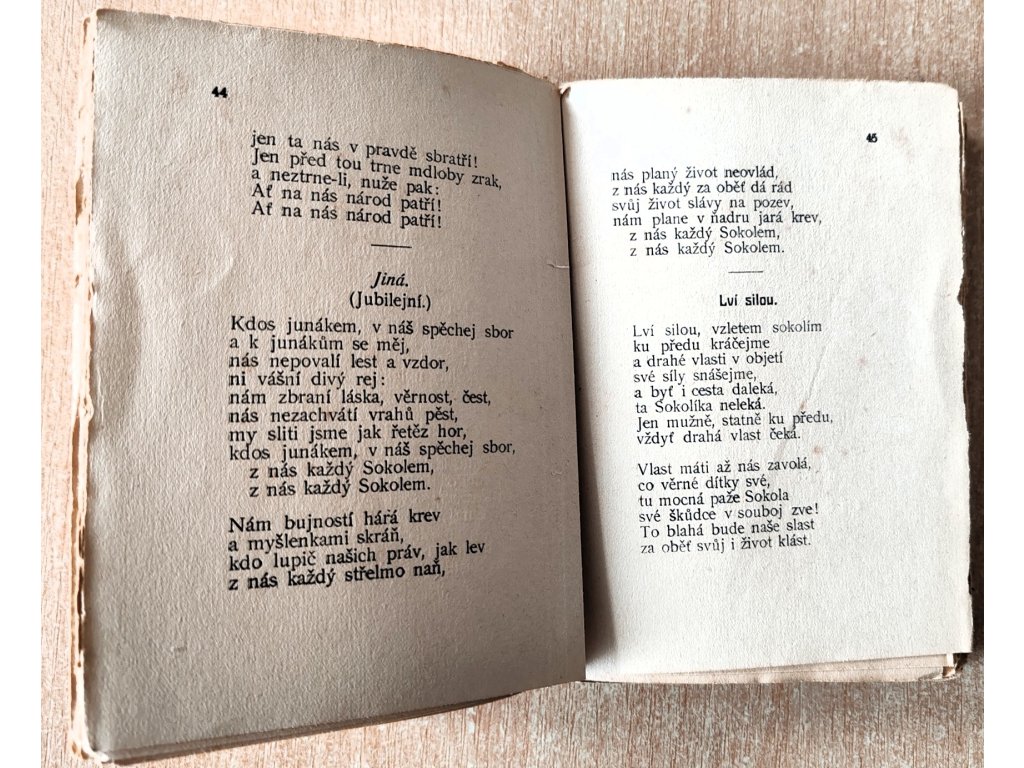 44
jen ta nás v pravdě sbratří!
Jen před tou trne mdloby zrak,
a neztrne-li, nuže pak:
Ať na nás národ patří!
Ať na nás národ patří!
Jiná.
(Jubilejní.)
Kdos junákem, v náš spěchej sbor
a k junákům se měj,
nás nepovalí lest a vzdor,
ni vášní divý rej:
nám zbraní láska, věrnost, čest,
nás nezachvátí vrahů pěst,
my sliti jsme jak řetěz hor,
kdos junákem, v náš spěchej sbor,
z nás každý Sokolem,
z nás každý Sokolem.
Nám bujností hárá krev
a myšlenkami skráň,
kdo lupič našich práv, jak lev
z nás každý střelmo naň,
45
nás planý život neovlád,
z nás každý za oběť dá rád
svůj život slávy na pozev,
nám plane v ňadru jará krev,
z nás každý Sokolem,
z nás každý Sokolem.
Lví silou.
Lví silou, vzletem sokolím
ku předu kráčejme
a drahé vlasti v objetí
své síly snášejme,
a byť i cesta daleká,
ta Sokolíka neleká.
Jen mužně, statně ku předu,
vždyť drahá vlast čeká.
Vlast máti až nás zavolá,
co věrné dítky své,
tu mocná paže Sokola
své škůdce v souboj zve!
To blahá bude naše slast
za oběť svůj i život klást.